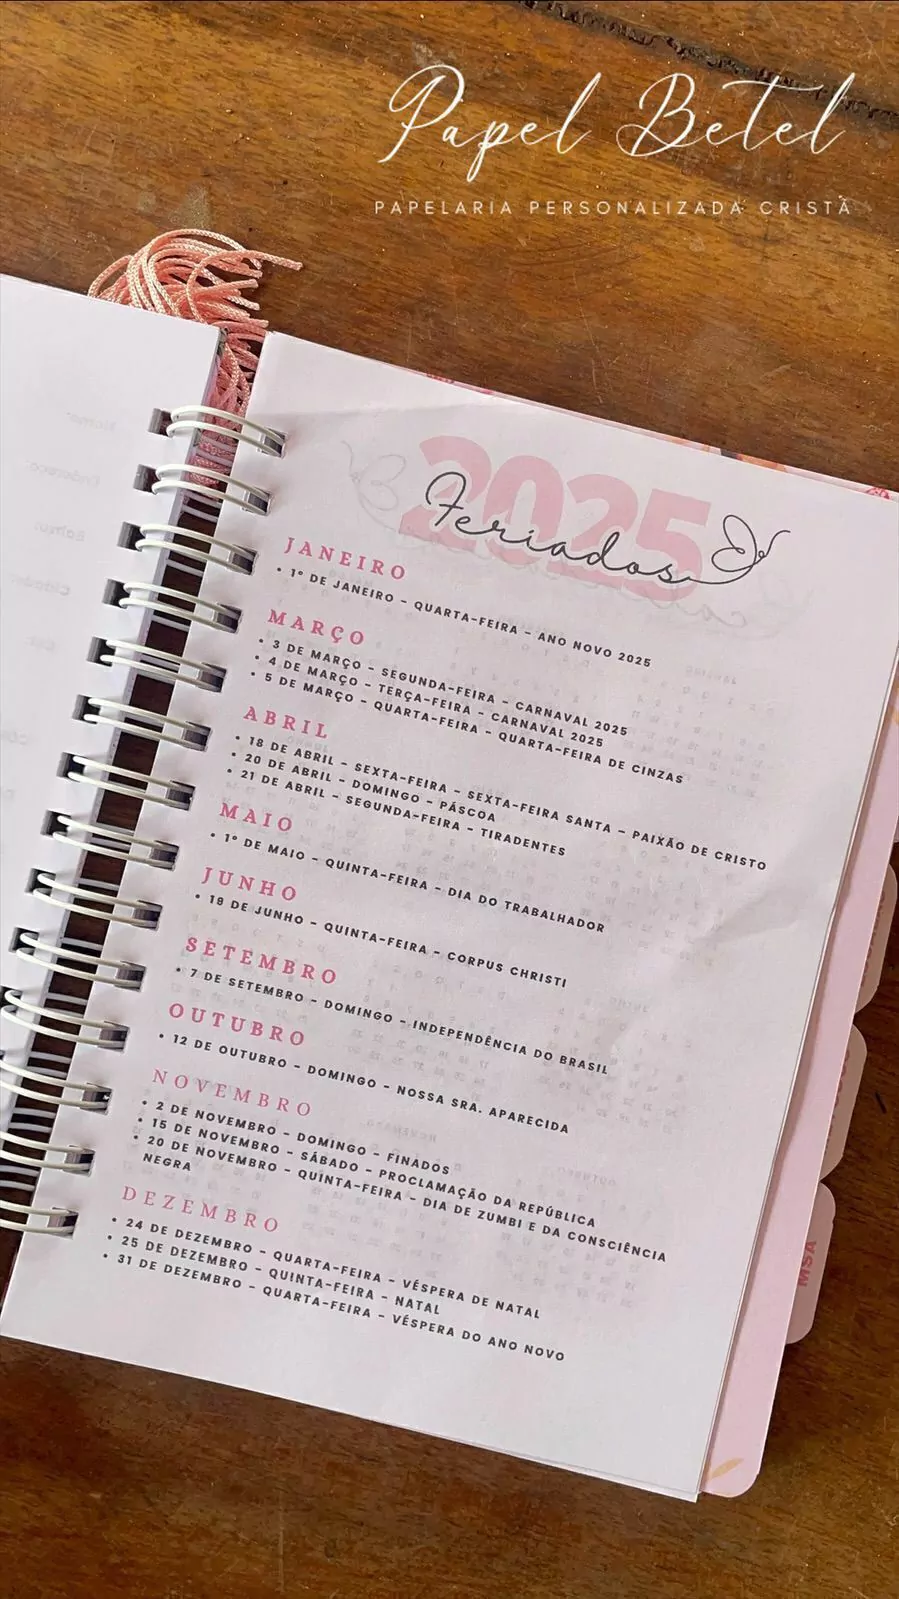 Papel Betel
PAPELARIA PERSONALIZADA CRISTÃ
2025
Feriados
JANEIRO
• 1º DE JANEIRO – QUARTA-FEIRA – ANO NOVO 2025
MARÇO
• 3 DE MARÇO – SEGUNDA-FEIRA – CARNAVAL 2025
• 4 DE MARÇO – TERÇA-FEIRA – CARNAVAL 2025
• 5 DE MARÇO – QUARTA-FEIRA – QUARTA-FEIRA DE CINZAS
ABRIL
• 18 DE ABRIL – SEXTA-FEIRA – SEXTA-FEIRA SANTA – PAIXÃO DE CRISTO
• 20 DE ABRIL – DOMINGO – PÁSCOA
• 21 DE ABRIL – SEGUNDA-FEIRA – TIRADENTES
MAIO
• 1º DE MAIO – QUINTA-FEIRA – DIA DO TRABALHADOR
JUNHO
• 18 DE JUNHO – QUINTA-FEIRA – CORPUS CHRISTI
SETEMBRO
• 7 DE SETEMBRO – DOMINGO – INDEPENDÊNCIA DO BRASIL
OUTUBRO
• 12 DE OUTUBRO – DOMINGO – NOSSA SRA. APARECIDA
NOVEMBRO
• 2 DE NOVEMBRO – DOMINGO – FINADOS
• 15 DE NOVEMBRO – SÁBADO – PROCLAMAÇÃO DA REPÚBLICA
• 20 DE NOVEMBRO – QUINTA-FEIRA – DIA DE ZUMBI E DA CONSCIÊNCIA
NEGRA
DEZEMBRO
• 24 DE DEZEMBRO – QUARTA-FEIRA – VÉSPERA DE NATAL
• 25 DE DEZEMBRO – QUINTA-FEIRA – NATAL
• 31 DE DEZEMBRO – QUARTA-FEIRA – VÉSPERA DO ANO NOVO